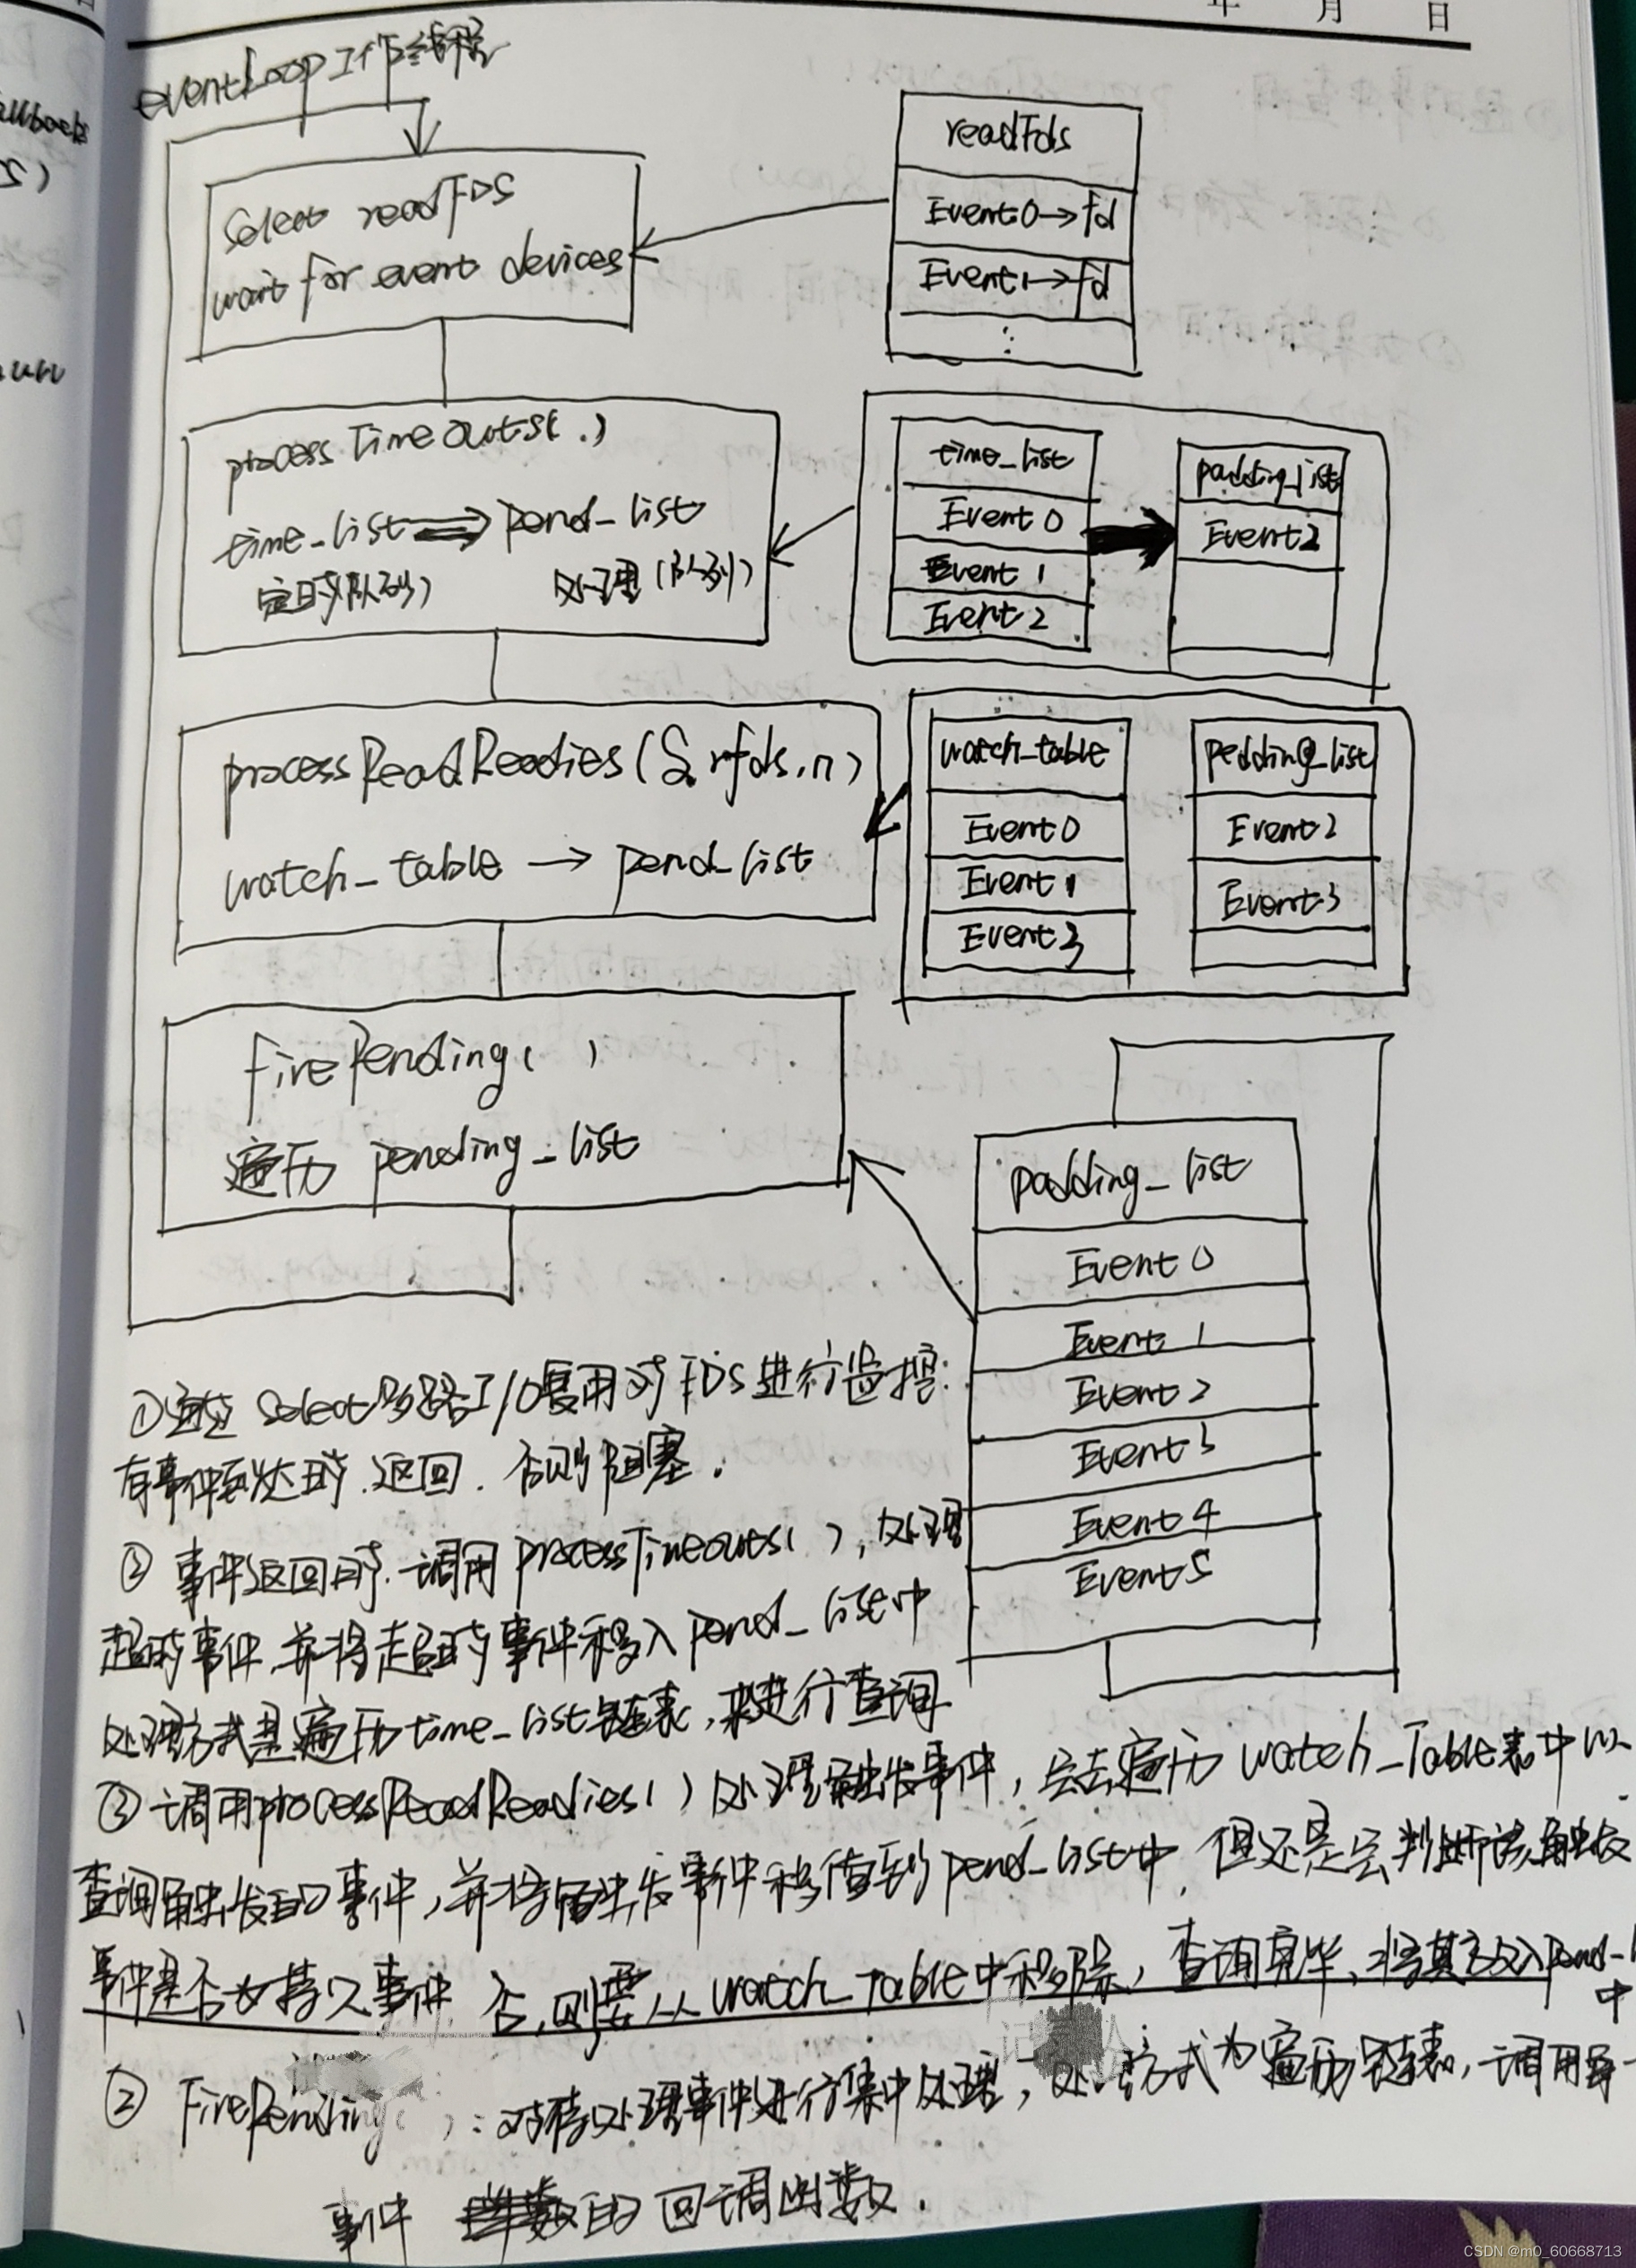 年 月 日
eventLoop工作线程
Select readFDS
wait for event devices
readFds
Event0→fd
Event1→fd
⋮
processTimeOuts(.)
time_list⇒pend_list
定时(队列) 处理(队列)
time_list
Event0
Event1
Event2
padding_list
Event2
processReadReadies(&rfds,n)
watch_table → pend_list
watch_table
Event0
Event1
Event3
pedding_list
Event2
Event3
firePending( )
遍历 pending_list
padding_list
Event0
Event1
Event2
Event3
Event4
Event5
①通过 Select多路I/O复用对FDS进行监控:
有事件到达时.返回.否则阻塞.
② 事件返回时.调用processTimeouts( ),处理
超时事件,并将超时事件移入pend_list中
处理方式是遍历time_list链表,来进行查询
③调用processReadReadies( )处理触发事件,会去遍历 watch_Table表中以
查询触发的事件,并将触发事件移植到pend_list中,但还是会判断该触发
事件是否为持久事件 否,则要从watch_Table中移除,查询完毕,将其放入pend-l
中
② FirePending( ):对待处理事件进行集中处理,处理方式为遍历链表,调用每一
事件 的回调函数.
allback
s)
CSDN @m0_60668713